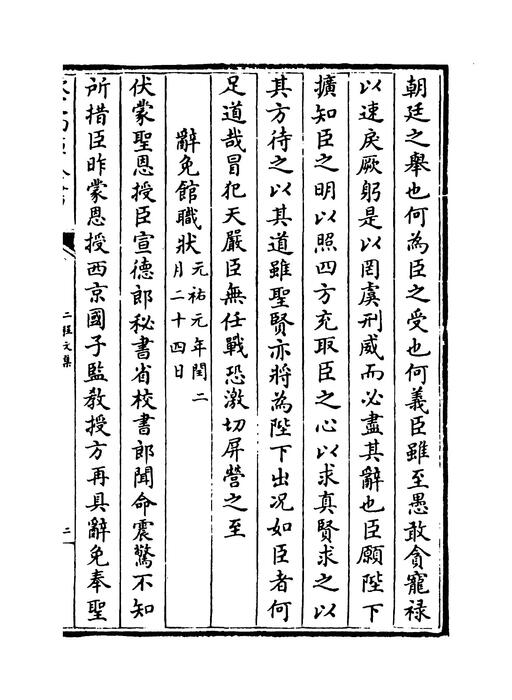 朝廷之舉也何為臣之受也何義臣雖至愚敢貪寵祿
以速戾厥躬是以罔虞刑威而必盡其辭也臣願陛下
擴知臣之明以照四方充取臣之心以求真賢求之以
其方待之以其道雖聖賢亦將為陛下出况如臣者何
足道哉冒犯天嚴臣無任戰恐激切屏營之至
辭免館職狀元祐元年閏二
月二十四日
伏蒙聖恩授臣宣德郎秘書省校書郎聞命震驚不知
所措臣昨蒙恩授西京國子監教授方再具辭免奉聖
二程文集
二